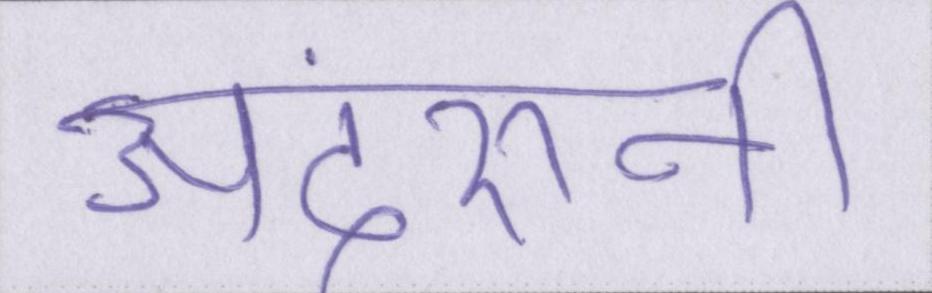 अंदरूनी